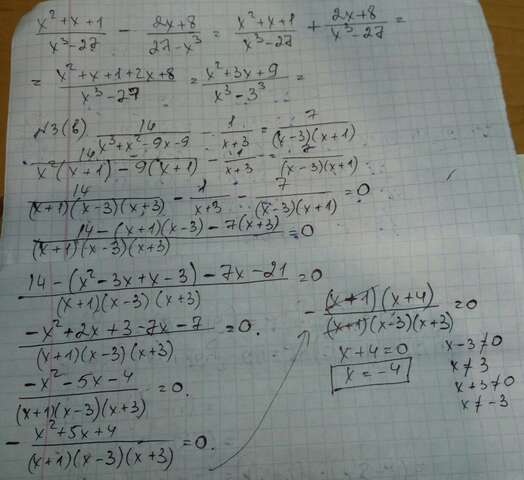 x²+x+1/x³-27 - 2x+8/27-x³ = x²+x+1/x³-27 + 2x+8/x³-27 =
= x²+x+1+2x+8/x³-27 = x²+3x+9/x³-3³ =
№3(в) 14/x³+x²-9x-9 - 1/x+3 = 7/(x-3)(x+1)
14/x²(x+1)-9(x+1) - 1/x+3 = 7/(x-3)(x+1)
14/(x+1)(x-3)(x+3) - 1/x+3 - 7/(x-3)(x+1) = 0
14-(x+1)(x-3)-7(x+3)/(x+1)(x-3)(x+3) = 0
14-(x²-3x+x-3)-7x-21/(x+1)(x-3)(x+3) = 0
-x²+2x+3-7x-7/(x+1)(x-3)(x+3) = 0.
-x²-5x-4/(x+1)(x-3)(x+3) = 0.
- x²+5x+4/(x+1)(x-3)(x+3) = 0.
- (x+1)(x+4)/(x+1)(x-3)(x+3) = 0
x+4=0
x=-4
x-3≠0
x≠3
x+3≠0
x≠-3